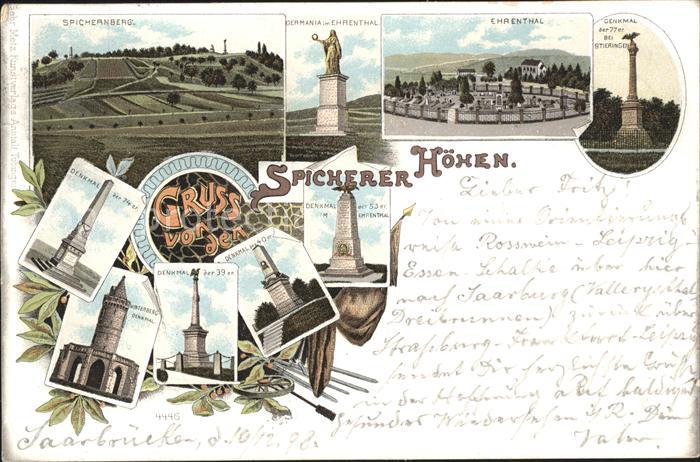 SPICHERNBERG.
GERMANIA im EHRENTHAL
EHRENTHAL
DENKMAL
der 77er
BEI
STIERINGEN
GRUSS
von den
SPICHERER HÖHEN.
DENKMAL der 74er
DENKMAL der 53er
IM EHRENTHAL
DENKMAL der 40er
DENKMAL der 39er
WINTERBERG
DENKMAL
4446
Lieber Fritz!
Von meiner
Rosswein - Leipzig -
Essen - Schalke über hier
nach Saarburg (
Dreibrunnen) und zurück über
Strassburg - Frankfurt - Leipzig
sendet Dir herzlichste Grüße
in der Hoffnung auf baldiges
gesundes Wiedersehen i/R. Dein
Vater.
Saarbrücken, d. 10/12. 98.